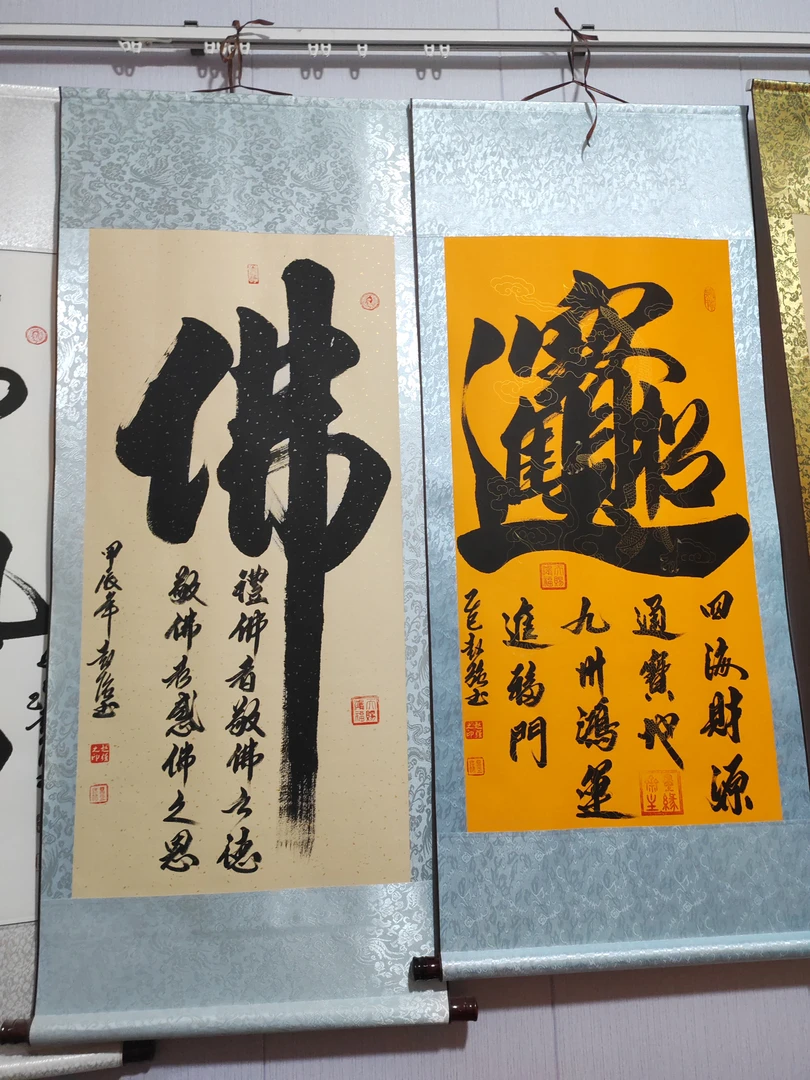 佛
禮佛者敬佛之德
敬佛者感佛之恩
甲辰年
招財進寶
四海財源
通寶地
九州鴻運
進福門
乙巳